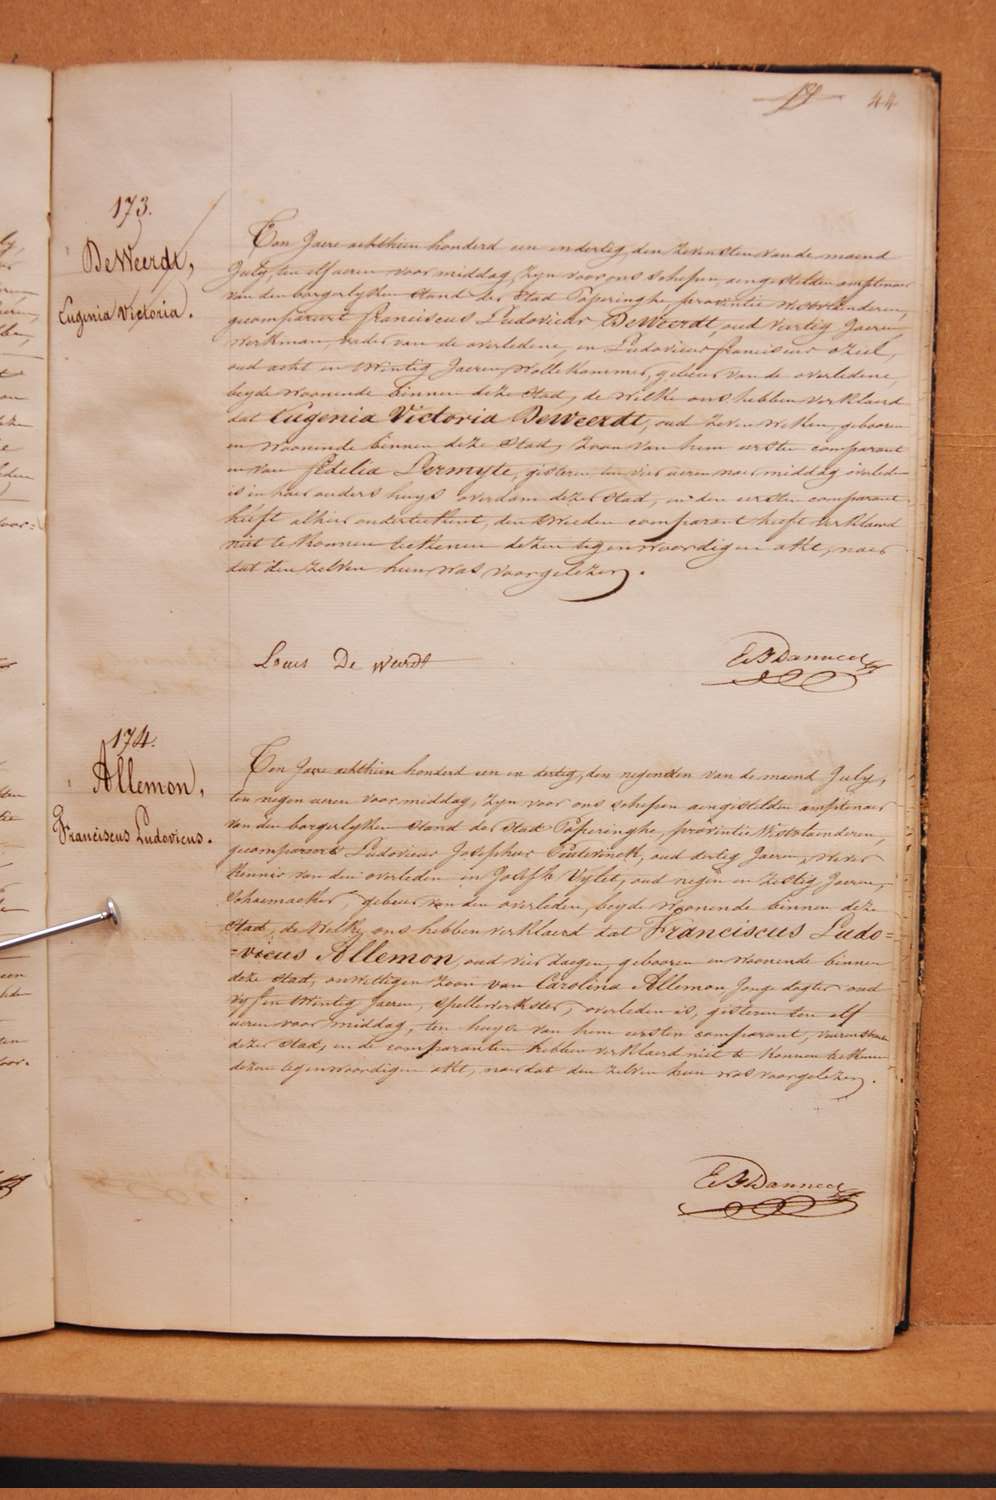 44
173.
DeWeerdt,
Eugenia Victoria.
Ten Jaere achthien honderd een en dertig, den zevensten van de maend
July, ten elf ueren voor middag, zyn voor ons schepen, aengestelden amptenaer
van den borgerlyken stand der Stad Poperinghe, provintie Westvlaenderen,
gecompareert franciscus Ludovicus DeWeerdt, oud veertig Jaeren
Werkman, vader van de overledene, en Ludovicus franciscus ozeel,
oud acht en twintig Jaeren, Wolle kammer, gebuer van de overledene,
beyde woonende binnen deze Stad, de welke ons hebben verklaerd
dat Eugenia Victoria DeWeerdt, oud zeven weken, gebooren
en woonende binnen deze Stad, zoon van hem eersten comparant
en van fidelia Dermyte, gisteren, ten vier ueren naer middag overleden
is in haer ouders huys overdam dezer Stad, en den eersten comparant
heeft alhier onderteekent, den tweeden comparant heeft verklaerd
niet te konnen teekenen dezen tegenwoordigen akte, naer
dat den zelven hun was voorgelezen.
Louis De Weerdt
174.
Allemon,
Franciscus Ludovicus.
Ten Jaere achthien honderd een en dertig, den negensten van de maend July,
ten negen ueren voor middag, zyn voor ons schepen aengestelden amptenaer
van den borgerlyken stand der Stad Poperinghe, provintie Westvlaenderen,
gecompareert Ludovicus Josephus oud dertig Jaeren, wever
kennis van den overleden en Joseph Vylet, oud negen en zestig Jaeren,
schoemaeker, gebuer van den overleden, beyde woonende binnen deze
Stad, de Welke ons hebben verklaerd dat Franciscus Ludo=
=vicus Allemon, oud vier daegen, gebooren en woonende binnen
deze Stad, onwettigen zoon van Carolina Allemon Jonge dogter oud
vyf en twintig Jaeren, spellewerkster, overleden is, gisteren ten elf
ueren voor middag, ten huyse van hem eersten comparant,
dezer Stad, en de comparanten hebben verklaerd niet te konnen teekenen
dezen tegenwoordigen akte, naer dat den zelven hun was voorgelezen.